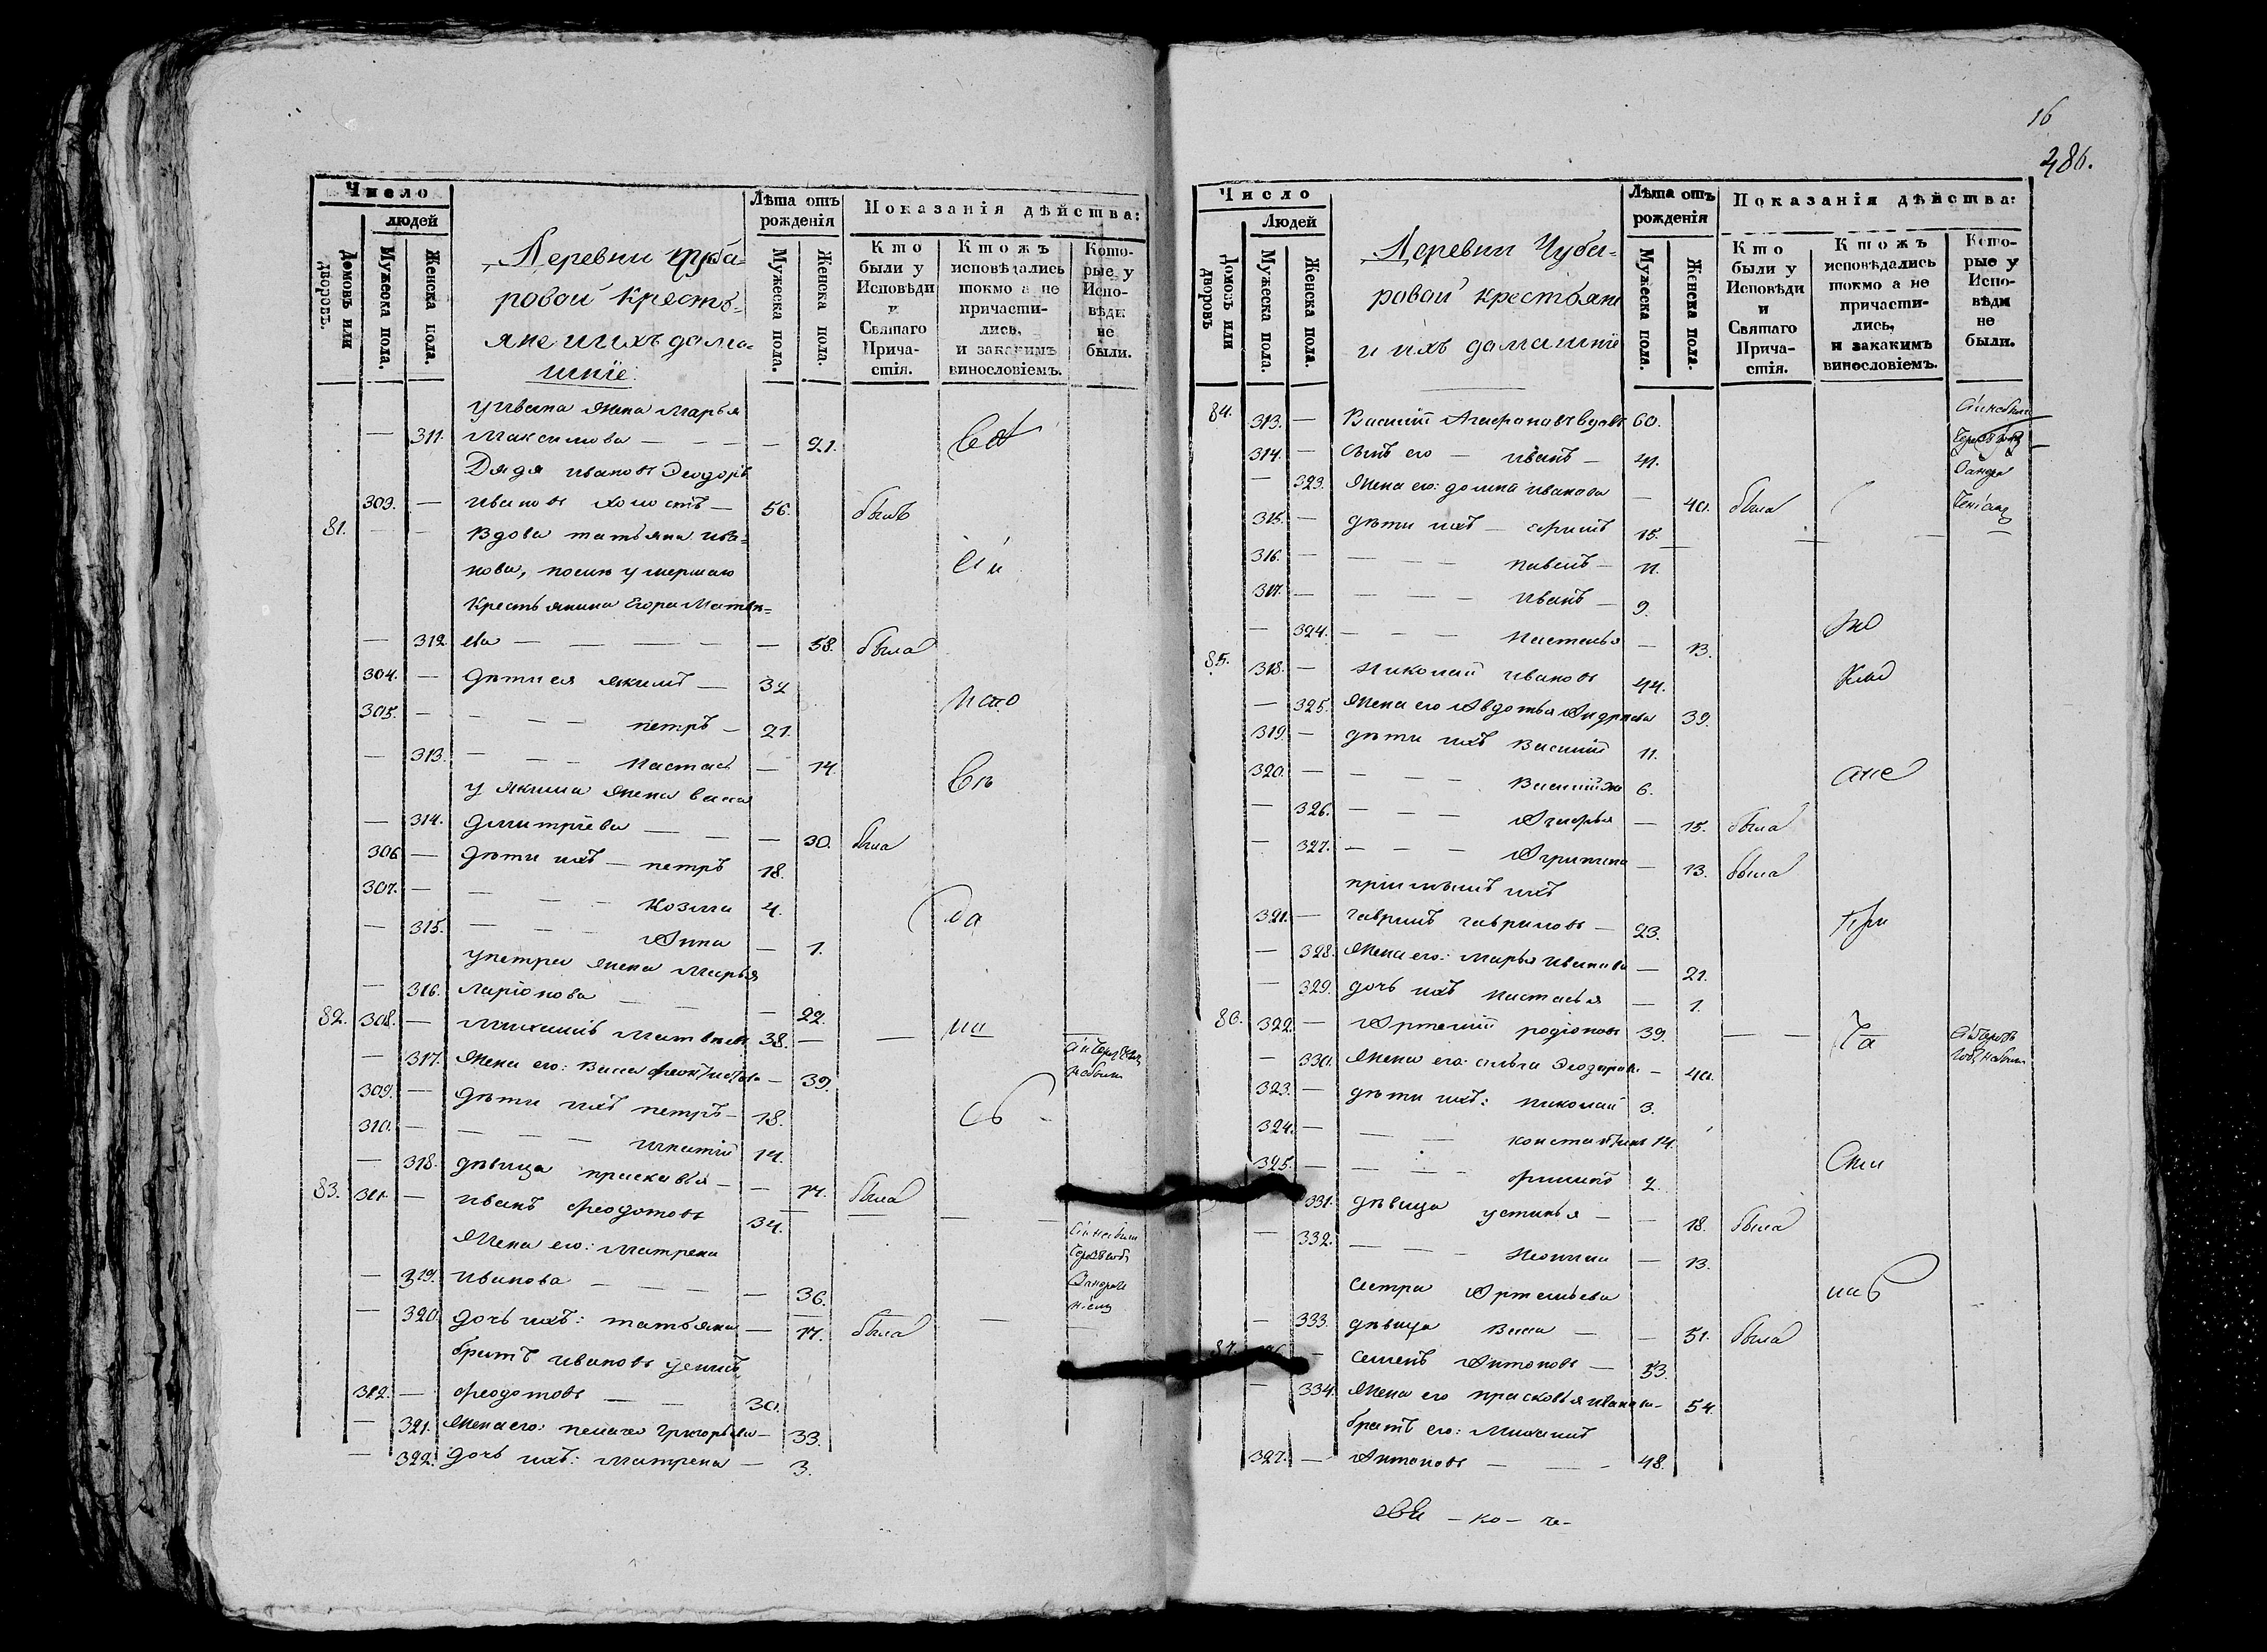 Число
людей
Домовъ или дворовъ.
Мужеска пола.
Женска пола.
Деревни Чуба-
ровой крестъ-
яне и ихъ дома-
шніе:
Лѣта отъ рожденія
Мужеска пола.
Женска пола.
Показанія дѣйства:
Кто были у Исповѣди и Святаго Прича- стія.
Ктожъ исповѣдались токмо а не причасти- лись, и закакимъ винословіемъ.
Кото- рые у Испо- вѣди не были.
у ивана жена марья
— 311. Максимова — — — — 21.
Дядя ивановъ Феодоръ
303. — ивановъ холостъ — 56. былъ
81. — — Вдова татьяна ива=
нова, послѣ умершаго
крестьянина Егора Матвѣ=
— 312 ева — — — — — 58. была
304. — дѣти ея якимъ — 32
305. — — — — петръ — 21.
— 313. — — — настась — 14.
у якима жена васа
— 314. дмитріева — — — 30. была
306 — дѣти ихъ — петръ 18.
307. — — — — козма 4.
— 315. — — — анна — 1.
у петра жена марья
— 316. ларіонова — — — 22.
82. 308. — михаилъ матвѣевъ 38. — —
— 317. жена его: васа — 39.
309. — дѣти ихъ петръ — 18.
310. — — — — игнатій 14.
— 318. дѣвица прасковья — — 17. была
83. 311. — иванъ феодотовъ 34. — —
жена его: матрена
— 319. иванова — — — — 36.
— 320. дочь ихъ: татьяна — 17. была —
братъ ивановъ
312. — феодотовъ — — 30.
— 321. жена его: пелагея григорьева — 33.
— 322. дочь ихъ: матрена — 3.
16
286.
Число
Людей
Домовъ или дворовъ
Мужеска пола.
Женска пола.
Деревни Чуба-
ровой крестьяне
и ихъ домашніе
Лѣта отъ рожденія
Мужеска пола.
Женска пола.
Показанія дѣйства:
Кто были у Исповѣди и Святаго Прича- стія.
Ктожъ исповѣдались токмо а не причасти- лись, и закакимъ винословіемъ.
Кото- рые у Испо- вѣди не были.
84. 313. — Василій Агафоновъ вдовъ 60.
314. — сынъ его — иванъ — 41.
— 323. жена его: домна иванова — 40. была
315. — дѣти ихъ — 15.
316. — — — — павелъ — 11.
317. — — — — иванъ — 9.
— 324. — — — настасья — 13.
85. 318. — николай ивановъ 44.
— 325. жена его авдотья андреева 39.
319. — дѣти ихъ василій 11.
320. — — — — василій 6.
— 326. — — — агафья — 15. была
— 327. — — — — 13. была
пріимышъ ихъ
321. — гаврилъ гавриловъ — 23.
— 328. жена его: марья иванова — 21.
— 329. дочь ихъ настасья — 1.
86. 322. — артемій родіоновъ 39. — —
— 330. жена его: феодорова — 40.
323. — дѣти ихъ: николай 3.
324. — — — константинъ 14.
325. — — — — филипъ 2.
331. дѣвица устинья — — 18. была
— 332. — — — — 13.
сестра артемьева
— 333. дѣвица васа — — 51. была
87. — семенъ антоновъ — 53.
— 334. жена его прасковья иванова — 54.
братъ его: михаилъ
327. — антоновъ — — 48.